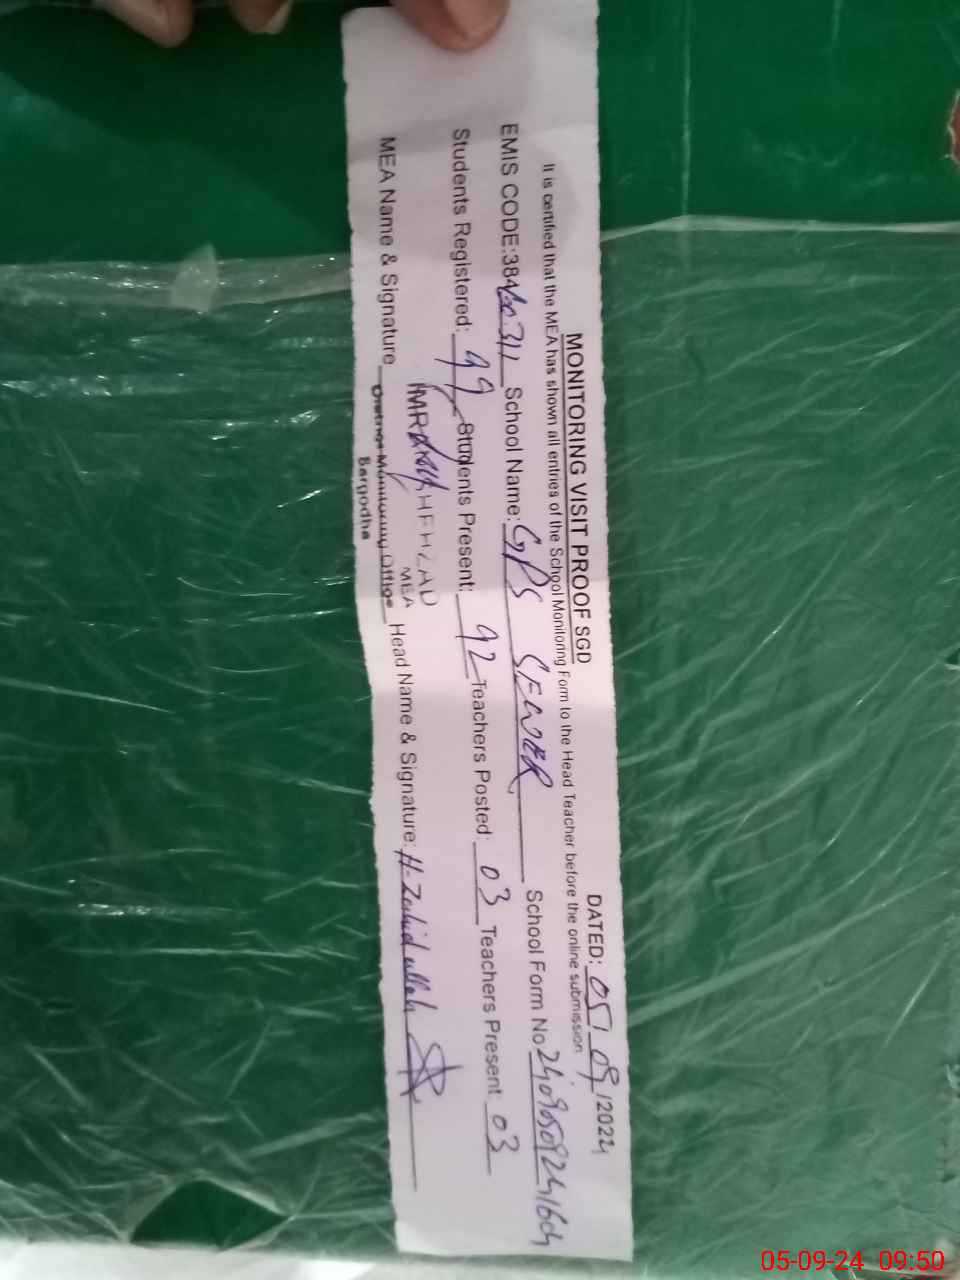 MONITORING VISIT PROOF SGD
DATED: 05/09/2024
It is certified that the MEA has shown all entries of the School Monitoring Form to the Head Teacher before the online submission
EMIS CODE:384 School Name: GPS SEWER School Form No
Students Registered: 99 Students Present: 92 Teachers Posted: 03 Teachers Present 03
MEA Name & Signature IMRAN SHEHZAD Head Name & Signature: H-Zahidullah
MEA
District Monitoring Office
Sargodha
05-09-24 09:50